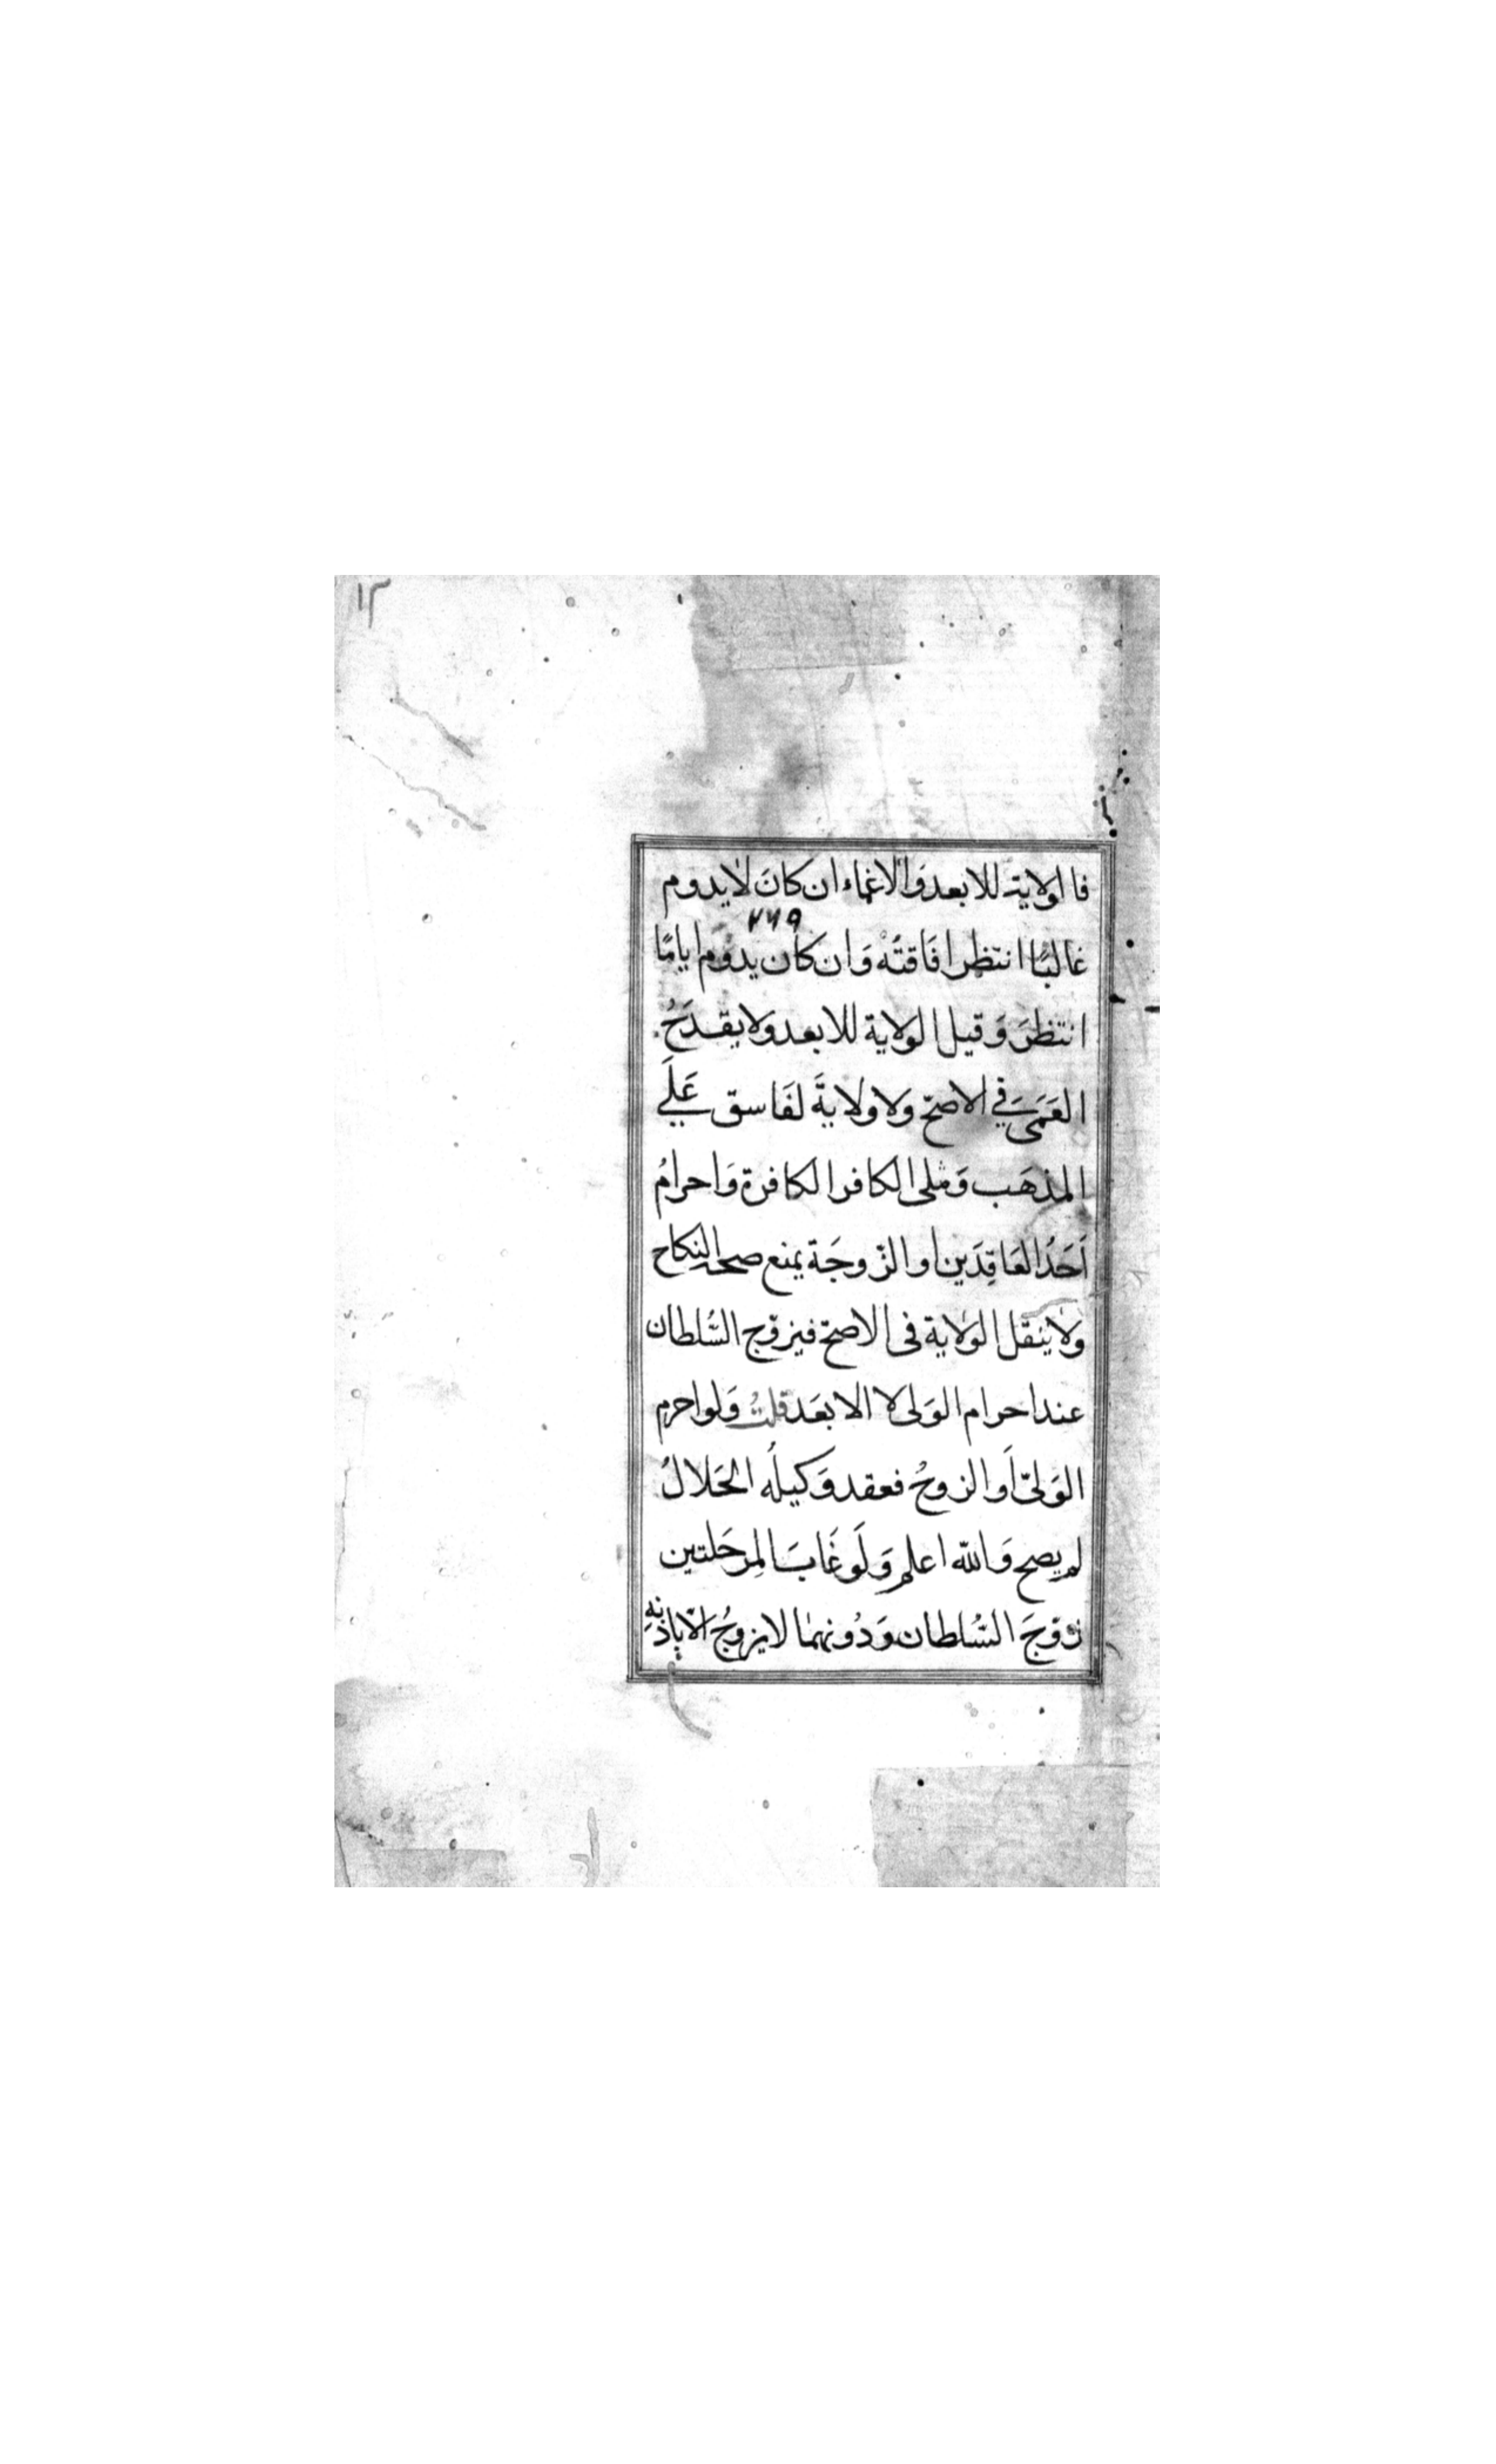 ١٢
فالولاية للابعد والاغماء ان كانَ لا يدوم
٧٧٩
غالبًا انتظر افَاقتُه وَان كان يدوُم ايامًا
انتظرَ وَقيل الولاية للابعد ولا يقدَحُ
العَمَىَ في الاصحّ ولا ولايةَ لفَاسق عَلَي
المذهَب وَيلي الكافر الكافرة وَاحرامُ
اَحَدُ العَاقِدَين اوالزّوجَة يمنع صحة النكاح
ولا ينقل الولاية فى الاصحّ فيزوّج السُّلطان
عند احرام الوَلى لا الابعَد قلتُ وَلواحرم
الوَلىّ اَوالزوجُ فعقد وَكيلُه الحَلالُ
لم يصح وَاللّه اعلم وَلَو غَابَ لِمرحَلتين
زوّجَ السُّلطان وَدُونهمَا لا يزوجُ الّا باذنهِ